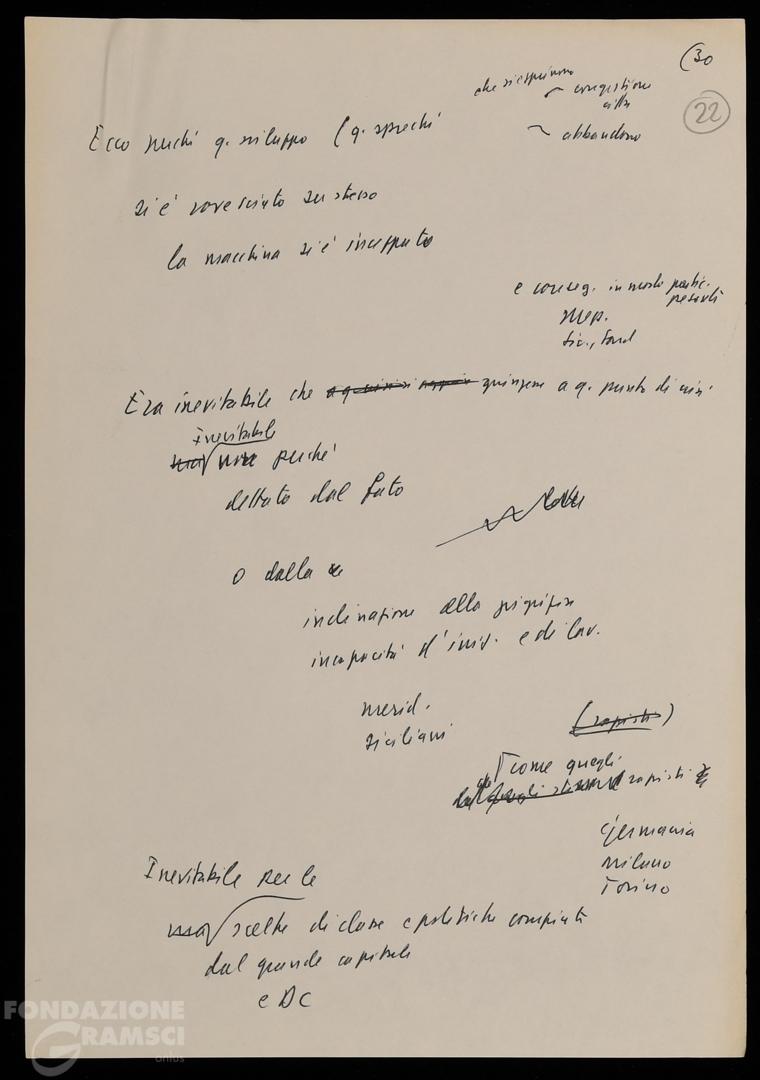 (30
22
che si esprimono
congestione
città
abbandono
Ecco perché q. sviluppo (q. sprechi
si è rovesciato su stesso
la macchina si è inceppata
e conseg. in modo partic.
pesanti
Mep.
Sic., Sard
Era inevitabile che giungere a q. punto di crisi
inevitabile
ma non perché
dettato dal fato
o dalla
inclinazione alla pigrizia
incapacità d'iniz. e di lav.
merid.
siciliani
(rapisti)
come quegli
rapisti
Germania
Milano
Torino
Inevitabile per le
ma scelte di classe e politiche compiute
dal grande capitale
e DC
FONDAZIONE
GRAMSCI
onlus